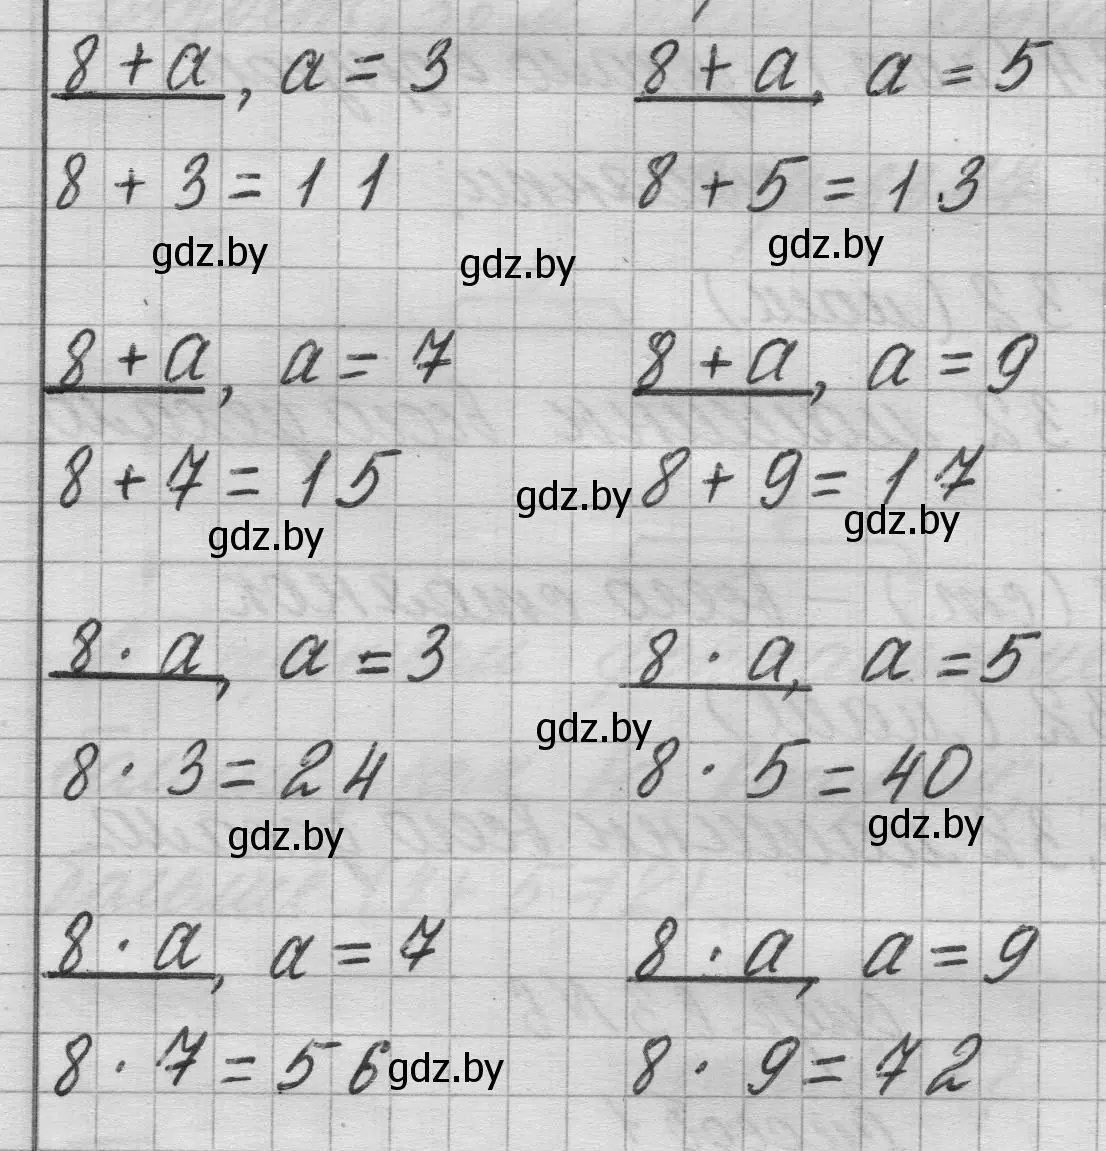 8 + a, a = 3 8 + a, a = 5
8 + 3 = 11 8 + 5 = 13
gdz.by gdz.by gdz.by
8 + a, a = 7 8 + a, a = 9
8 + 7 = 15 gdz.by 8 + 9 = 17
gdz.by gdz.by
8 · a, a = 3 8 · a, a = 5
gdz.by
8 · 3 = 24 8 · 5 = 40
gdz.by gdz.by
8 · a, a = 7 8 · a, a = 9
8 · 7 = 56 gdz.by 8 · 9 = 72